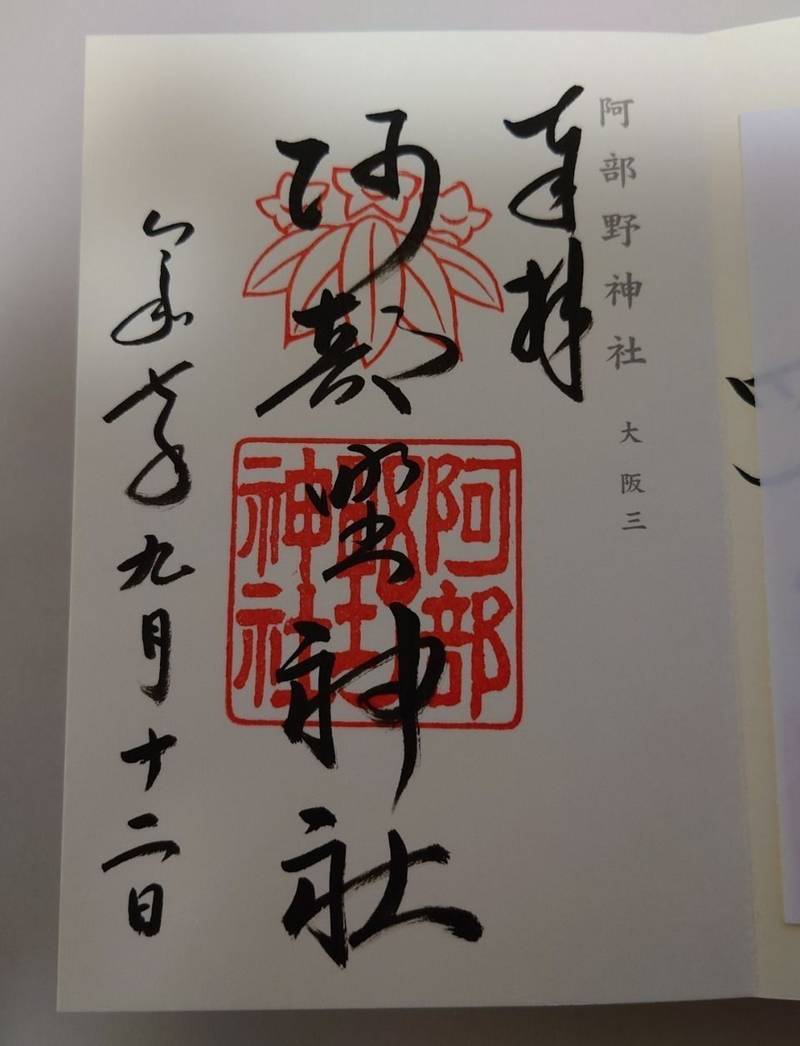 阿部野神社 大阪三
奉拝
阿部野神社
阿部野神社
令和七年九月十二日